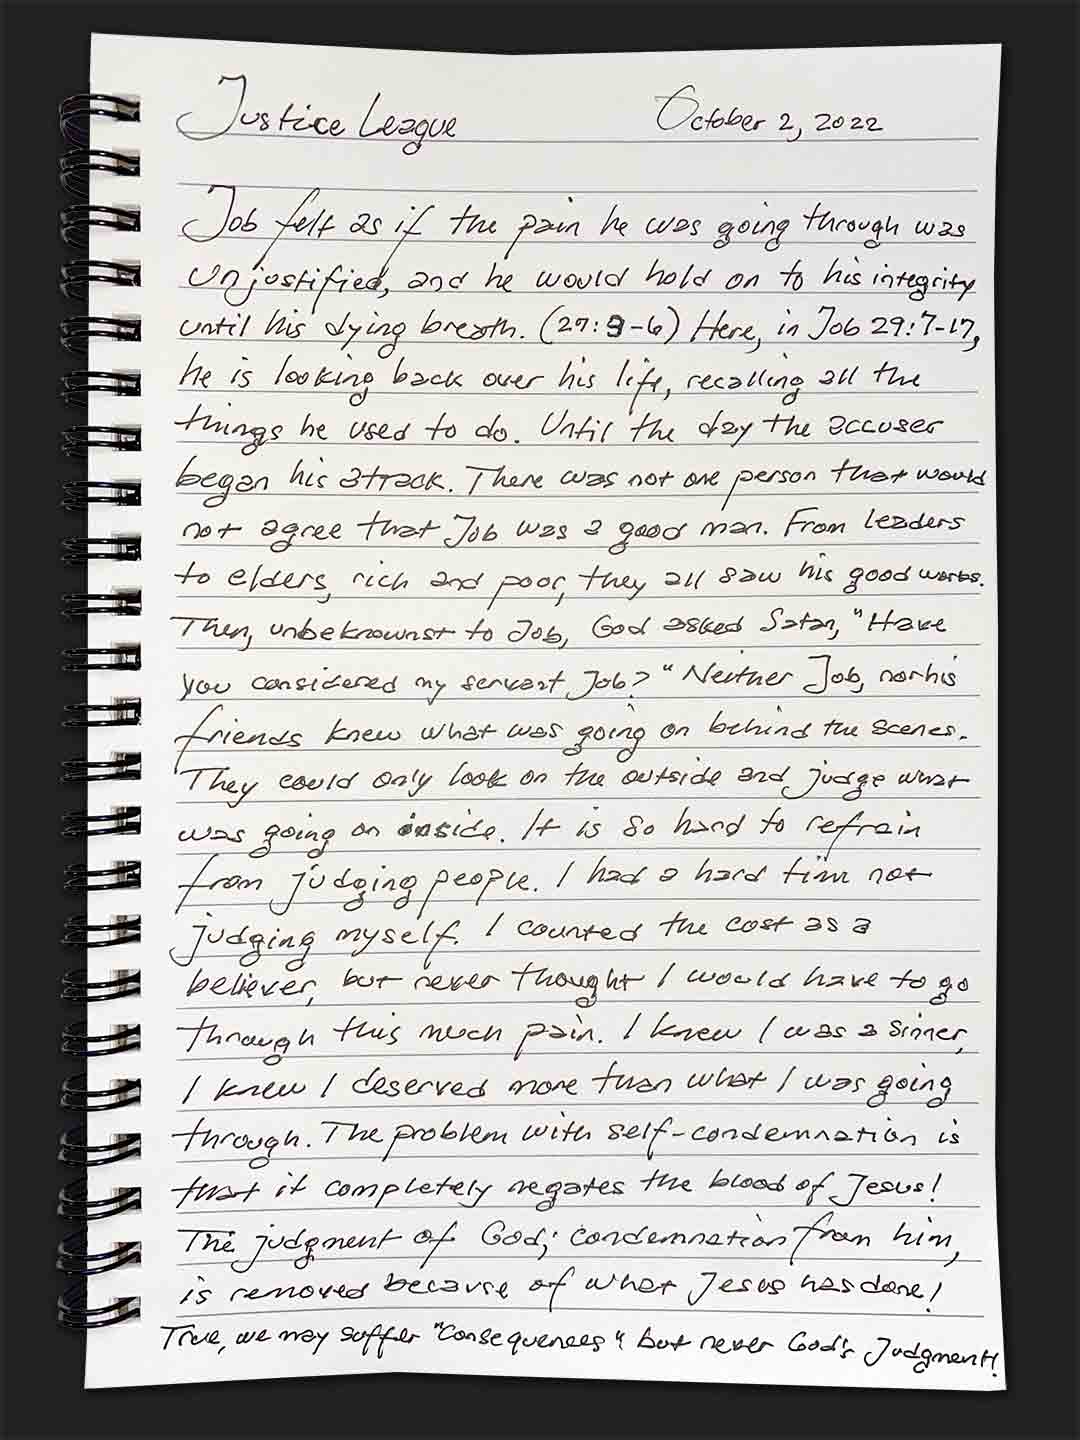 Justice League October 2, 2022
Job felt as if the pain he was going through was
unjustified, and he would hold on to his integrity
until his dying breath. (27:3-6) Here, in Job 29:7-17,
he is looking back over his life, recalling all the
things he used to do. Until the day the accuser
began his attack. There was not one person that would
not agree that Job was a good man. From leaders
to elders, rich and poor, they all saw his good works.
Then, unbeknownst to Job, God asked Satan, "Have
you considered my servant Job?" Neither Job, nor his
friends knew what was going on behind the scenes.
They could only look on the outside and judge what
was going on inside. It is so hard to refrain
from judging people. I had a hard tim not
judging myself. I counted the cost as a
believer, but never thought I would have to go
through this much pain. I knew I was a sinner,
I knew I deserved more than what I was going
through. The problem with self-condemnation is
that it completely negates the blood of Jesus!
The judgment of God; condemnation from him,
is removed because of what Jesus has done!
True, we may suffer "Consequences" but never God's Judgment!